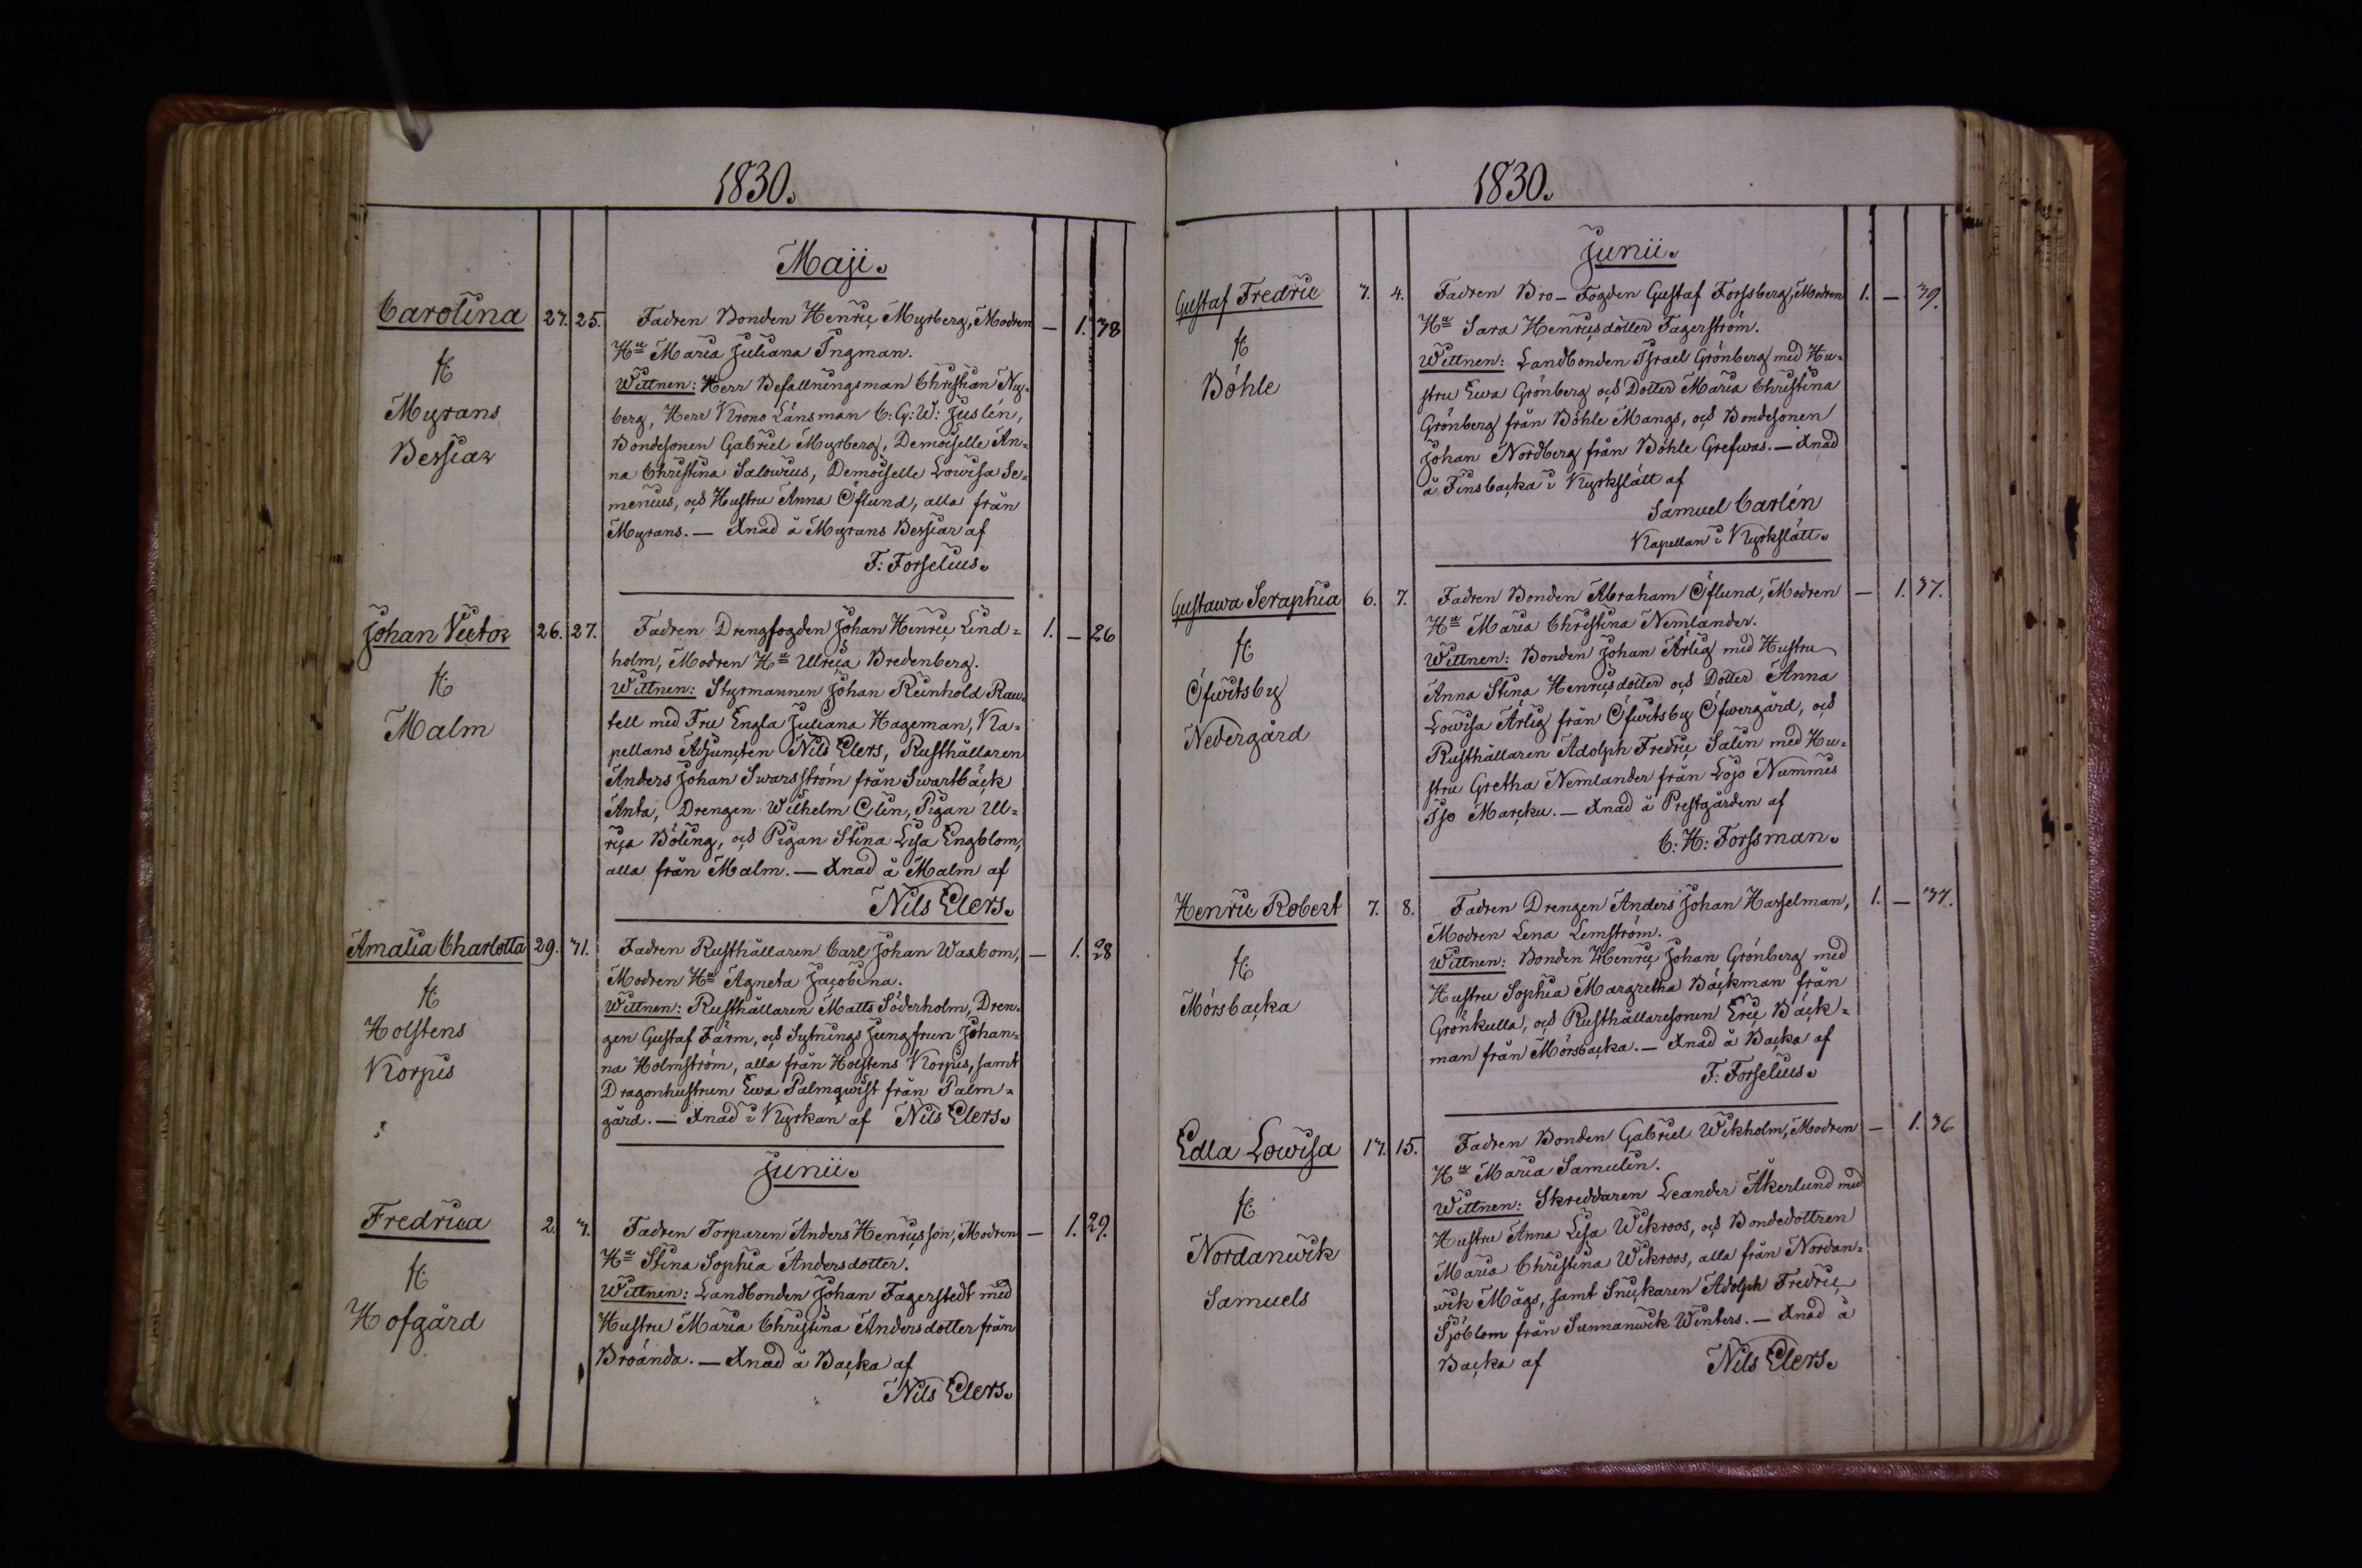 1830.
Maji.
Carolina 27. 25. Fadren Bonden Henric Myrberg, Modren — 1. 38
Hu Maria Juliana Ingman.
fr
Wittnen: Herr Befallningsman Christian Ny=
Myrans berg, Herr Krono Länsman C: G: W: Juslén,
Bondesonen Gabriel Myrberg, Demoiselle An=
Bessiar na Christina Salovius, Demoiselle Lowisa Se=
menius, och Hustru Anna Öflund, alla från
Myrans. — Xnad å Myrans Bessiar af
F: Forselius.
Johan Victor 26. 27. Fadren Drengfogden Johan Henric Lind= 1. — 26
holm, Modren Hu Ulrica Bredenberg.
fr
Wittnen: Styrmannen Johan Reinhold Rau=
Malm tell med Fru Engla Juliana Hageman, Ka=
pellans Adjuncten Nils Elers, Rusthållaren
Anders Johan Swarsström från Swartbäck
Anta, Drengen Wilhelm Olin, Pigan Ul=
rica Böling, och Pigan Stina Lisa Engblom,
alla från Malm. — Xnad å Malm af
Nils Elers.
Amalia Charlotta 29. 31. Fadren Rusthållaren Carl Johan Waxbom, — 1. 28
Modren Hu Agneta Jacobina.
fr
Wittnen: Rusthållaren Matts Söderholm, Dren=
Holstens gen Gustaf Färm, och Sytnings Jungfrun Johan=
Korpis na Holmström, alla från Holstens Korpis, samt
Dragonhustrun Ewa Palmqwist från Palm=
gård. — Xnad i Kyrkan af Nils Elers.
Junii.
Fredrica 2. 3. Fadren Torparen Anders Henricsson, Modren — 1. 29.
Hu Stina Sophia Andersdotter.
fr
Wittnen: Landbonden Johan Fagerstedt med
Hofgård Hustru Maria Christina Andersdotter från
Broända. — Xnad å Backa af
Nils Elers.
1830.
Junii.
Gustaf Fredric 3. 4. Fadren Bro-Fogden Gustaf Forssberg, Modren 1. — 39.
Hu Sara Henricsdotter Fagerström.
fr
Wittnen: Landbonden Israel Grönberg med Hu=
Böhle stru Ewa Grönberg och Dotter Maria Christina
Grönberg från Böhle Mangs, och Bondesonen
Johan Nordberg från Böhle Grefwas. — Xnad
å Finsbacka i Kyrkslätt af
Samuel Carlén
Kapellan i Kyrkslätt.
Gustawa Seraphia 6. 7. Fadren Bonden Abraham Öflund, Modren — 1. 37.
Hu Maria Christina Nemlander.
fr
Wittnen: Bonden Johan Ärlig med Hustru
Öfwitsby Anna Stina Henricsdotter och Dotter Anna
Nedergård Lowisa Ärlig från Öfwitsby Öfwergård, och
Rusthållaren Adolph Fredric Salin med Hu=
stru Gretha Nemlander från Lojo Nummis
Iso Marcku. — Xnad å Prestgården af
C: H: Forssman.
Henric Robert 7. 8. Fadren Drengen Anders Johan Harselman, 1. — 37.
Modren Lena Lemström.
fr
Wittnen: Bonden Henric Johan Grönberg med
Mörsbacka Hustru Sophia Margretha Bäckman från
Grönkulla, och Rusthållaresonen Eric Bäck=
man från Mörsbacka. — Xnad å Backa af
F: Forselius.
Edla Lowisa 13. 15. Fadren Bonden Gabriel Wikholm, Modren — 1. 36
Hu Maria Samulin.
fr
Wittnen: Skreddaren Leander Åkerlund med
Nordanwik Hustru Anna Lisa Wikroos, och Bondedottren
Samuels Maria Christina Wikroos, alla från Nordan=
wik Mågs, samt Snickaren Adolph Fredric
Sjöblom från Sunnanwik Winters. — Xnad å
Backa af Nils Elers.